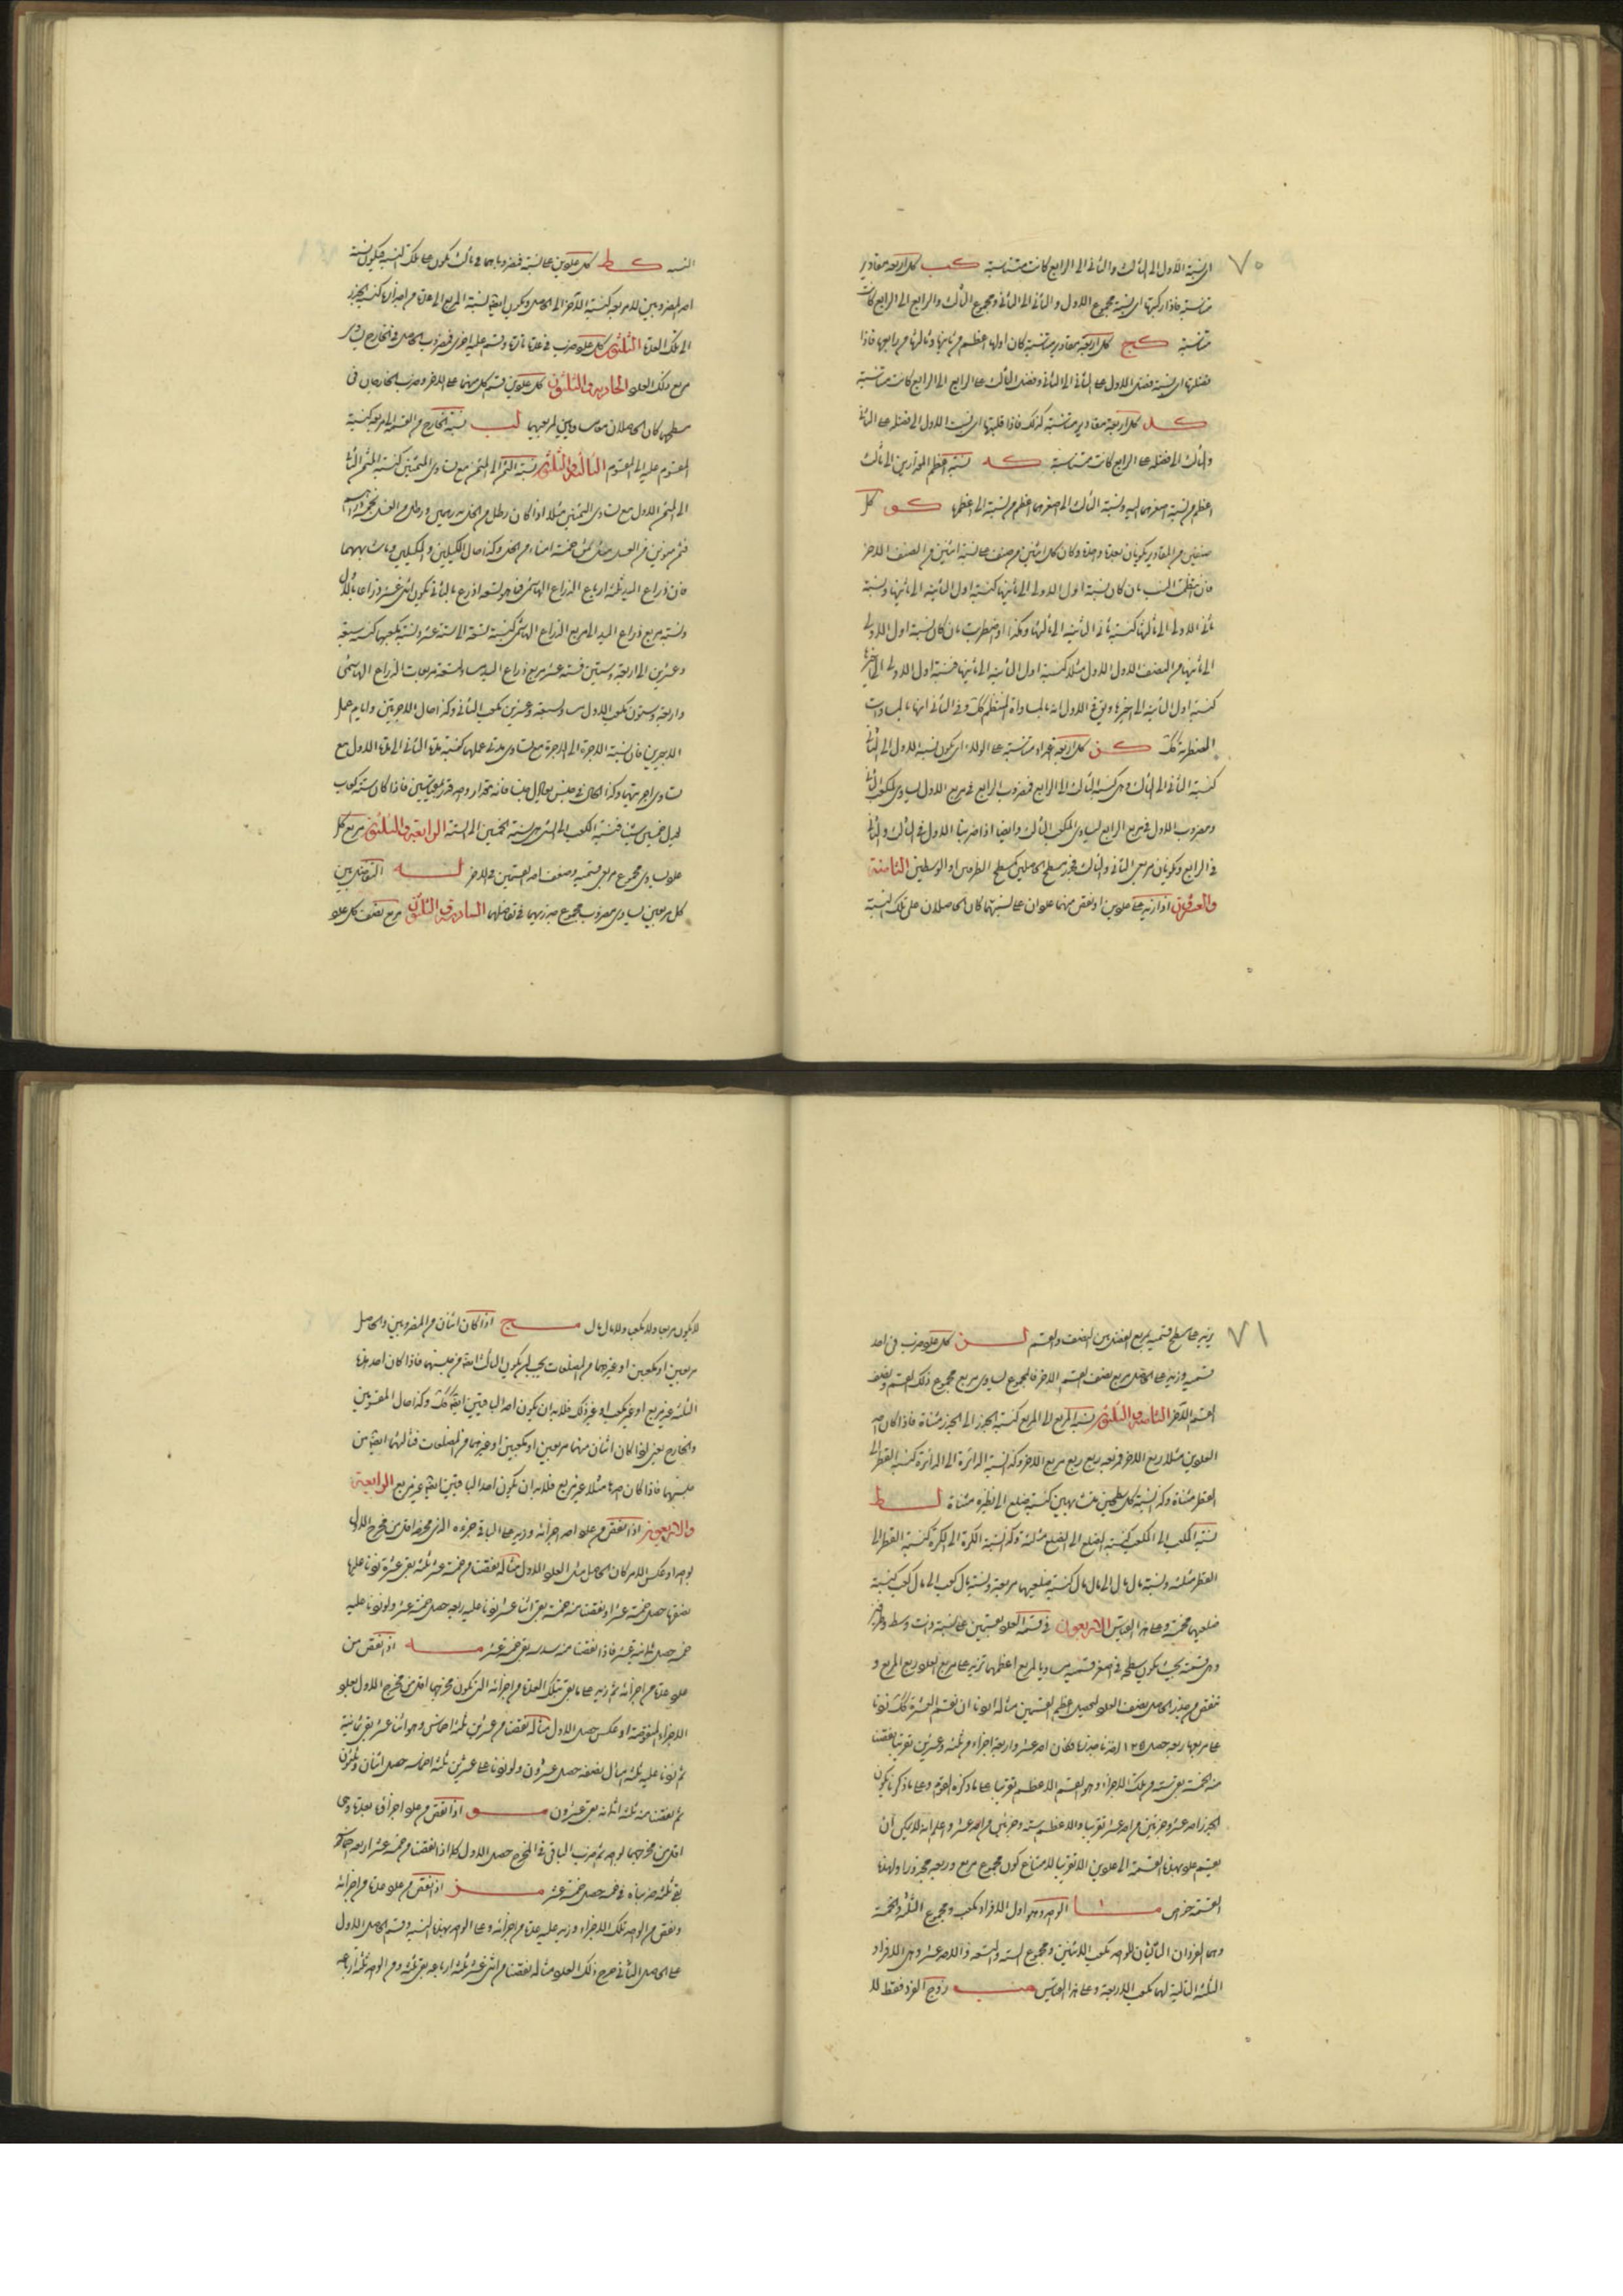 ٧٠
اى نسبة الاول الى الثالث والثانى الى الرابع كانت متناسبة كب كل اربعة مقادير
متناسبة فاذا ركبتها اى نسبة مجموع الاول والثانى الى الثانى ومجموع الثالث والرابع الى الرابع كانت
متناسبة كج كل اربعة مقادير متناسبة كان اولها اعظم من ثانيها وثالثها من رابعها فاذا
فصلتها اى نسبة فضل الاول على الثانى الى الثانى وفضل الثالث على الرابع الى الرابع كانت متناسبة
كد كل اربعة مقادير متناسبة كذلك فاذا قلبتها اى نسبت الاول الى فضله على الثانى
والثالث الى فضله على الرابع كانت متناسبة كه نسبة اعظم المقدارين الى ثالث
اعظم من نسبة اصغرهما اليه ونسبة الثالث الى اصغرهما اعظم من نسبته الى اعظمهما كو كل
صنفين من المقادير يكونان بعدة واحدة وكان كل اثنين من صنف على نسبة اثنين من الصنف الاخر
فان انتظمت النسب بان كان نسبة اول الاولى الى ثانيها كنسبة اول الثانية الى ثانيها ونسبة
ثانى الاولى الى ثالثها كنسبة ثانى الثانية الى ثالثها وهكذا او اضطربت بان كان نسبة اول الاولى
الى ثانيها من الصنف الاول مثلا كنسبة اول الثانية الى ثانيها فنسبة اول الاولى الى اخيرها
كنسبة اول الثانية الى اخيرها وفى الاول انه بالمساواة المنتظم كك وفى الثانى انها بالمساوات
المضطربة كك كز كل اربعة اعداد متناسبة على الولاء اى يكون نسبة الاول الى الثانى
كنسبة الثانى الى الثالث وهى كنسبة الثالث الى الرابع فمضروب الرابع فى مربع الاول يساوى المكعب الثانى
ومضروب الاول فى مربع الرابع يساوى المكعب الثالث وايضا اذا ضربنا الاول فى الثالث والثانى
فى الرابع ويكونان مربعى الثانى والثالث فجذر مسطح الحاصلين كمسطح الطرفين او الوسطين الثامنة
والعشرون اذا زيد على عددين او نقص منهما عددان على نسبتهما كان الحاصلان على تلك النسبة
النسبة كط كل عددين على نسبة فمضروباهما فى ثالث يكون على تلك النسبة فيكون نسبة
احد المضروبين للمربعه كنسبة الآخر الى الحاصل ويكون ايضا نسبة المربع الى عدة من اجذاره كنسبة الجذر
الى تلك العدة الثلثون كل عدد ضرب فى عدة تارة وقسم عليه اخرى فمضروب الحاصل فى الخارج يساوى
مربع ذلك العدد الحادية والثلثون كل عددين قسم كل منهما على الاخر وضرب الخارجان فى
مسطحهما كان الحاصلان مساويين لمربعيهما لب نسبة الخارج من القسمة الى مربعه كنسبة
المقسوم عليه الى المقسوم الثالثة والثلثون نسبة الثمن الى الثمن مع تساوى المثمنين كنسبة المثمن الثانى
الى الثمن الاول مع تساوى الثمنين مثلا اذا كان رطل من الخل بدرهمين ورطل من العسل بخمسة دراهم
فثمن موزنين من العسل مثل ثمن خمسة امناء من الخل وكذا حال الكيلين والمكيلين وما شابههما
فان ذراع اليد ثلثة ارباع الذراع الهاشمى فما هو تسعة اذرع بالثانى يكون اثنى عشر ذراعا بالاول
ونسبة مربع ذراع اليد الى مربع الذراع الهاشمى كنسبة تسعة الى ستة عشر ونسبة مكعبها كنسبة سبعة
وعشرين الى اربعة وستين فستة عشر مربع ذراع اليد يساوى تسعة مربعات الذراع الهاشمى
واربعة وستون مكعب الاول يساوى سبعة وعشرين مكعب الثانى وكذا حال الاجرتين وايام عمل
الاجيرين فان نسبة الاجرة الى الاجرة مع تساوى مدتى عملهما كنسبة مدة الثانى الى مدة الاول مع
تساوى اجرتيهما وكذا الحال فى جنس يعادل جنسا فانه بمقدار واحد
يعدل خمسين شيئا فنسبة الكعب الى الشئ هى نسبة الخمسين الى الستة الرابعة والثلثون مربع كل
عدد يساوى مجموع مربعى قسميه وضعف احد القسمين فى الاخر له التفاضل بين
كل مربعين يساوى مضروب مجموع جذريهما فى تفاضلهما السادسة والثلثون مربع نصف كل عدد
٧١
يزيد على مسطح قسميه بمربع الفضل بين النصف والقسم لز كل عدد ضرب فى احد
قسميه وزيد على الحاصل مربع نصف القسم الاخر فالمجموع يساوى مربع مجموع ذلك القسم ونصف
القسم الآخر الثامنة والثلثون نسبة المربع الى المربع كنسبة الجذر الى الجذر مثناة فاذا كان احد
العددين مثلا ربع الاخر فمربعه ربع ربع مربع الاخر وكذا نسبة الدائرة الى الدائرة كنسبة القطر الى
القطر مثناة وكذا نسبة كل سطحين متشابهين كنسبة ضلع الى نظيره مثناة لط
نسبة المكعب الى المكعب كنسبة الضلع الى الضلع مثلثة وكذا نسبة الكرة الى الكرة كنسبة القطر الى
القطر مثلثة ونسبة مال مال الى مال مال كنسبة ضلعيهما مربعة ونسبة مال كعب الى مال كعب كنسبة
ضلعيهما مخمسة وعلى هذا القياس الاربعون فى قسمة العدد بقسمين على نسبة ذات وسط وطرفين
وهى قسمته بحيث يكون مسطحه فى اصغر قسميه مساويا لمربع اعظمهما تزيد على مربع العدد ربع المربع و
تنقص من جذر الحاصل نصف العدد ليحصل اعظم القسمين مثاله اردنا ان نقسم العشرة كك زدنا
على مربعها ربعه حصل ١٢٥ اخذنا جذره فكان احد عشر واربعة اجزاء من ثلثة وعشرين تقريبا نقصنا
منه الخمسة بقى ستة من تلك الاجزاء وهو القسم الاعظم تقريبا على ما ذكره القوم وعلى ما ذكرنا يكون
الجذر احد عشر وجزئين من احد عشر تقريبا والاعظم ستة وجزئين من احد عشر واعلم انه لا يمكن ان
يقسم عدد بهذه القسمة الى عددين الا تقريبا لامتناع كون مجموع مربع وربعه مجذورا ولهذه
القسمة خواص ما الواحد وهو اول الافراد مكعب ومجموع الثلثة والخمسة
وهما الفردان التاليان للواحد مكعب الاثنين ومجموع السبعة والتسعة والاحد عشر وهى الافراد
الثلثة التالية لهما مكعب الاربعة وعلى هذا القياس مب زوج الفرد فقط لا
لا يكون مربعا ولا مكعبا ولا مال مال مج اذا كان اثنان من المضروبين والحاصل
مربعين او مكعبين او غيرهما من المضلعات يجب ان يكون الثالث ايضا من جنسهما فاذا كان احد هذه
الثلثة غير مربع او غير مكعب او غير ذلك فلابد ان يكون احد الباقيين ايضا كك وكذا حال المقسومين
والخارج يعنى اذا كان اثنان منهما مربعين او مكعبين او غيرهما من المضلعات فثالثهما ايضا من
جنسهما فاذا كان احدها مثلا غير مربع فلابد ان يكون احد الباقيين ايضا غير مربع الرابعة
والاربعون اذا نقص من عدد احد اجزائه وزيد على الباقى جزءه الذى مخرجه اقل من مخرج الاول
بواحد او عكس الامر كان الحاصل مثل العدد الاول مثاله نقصنا من خمسة عشر ثلثه بقى عشرة زدنا عليها
نصفها حصل خمسة عشر او نقصنا منه خمسه بقى اثنا عشر زدنا عليه ربعه حصل خمسة عشر ولو زدنا عليه
خمسه حصل ثمانية عشر فاذا نقصنا منه سدسه بقى خمسة عشر مه اذا نقص من
عدد عدة من اجزائه ثم زيد على ما بقى بتلك العدة من اجزائه التى يكون مخرجها اقل من مخرج الاول بعدد
الاجزاء المنقوصة او عكس حصل الاول مثاله نقصنا من عشرين ثلثة اخماسه وهو اثنا عشر بقى ثمانية
ثم زدنا عليه ثلثة امثال نصفه حصل عشرون ولو زدنا على عشرين ثلثة اخماسه حصل اثنان وثلثون
ثم نقصنا منه ثلثة اثمانه بقى عشرون مو اذا نقص من عدد اجزاؤه بعدة هى
اقل من مخرجها بواحد ثم ضرب الباقى فى المخرج حصل الاول كما اذا نقصنا من خمسة عشر اربعة اخماسه
بقى ثلثة ضربناه فى خمسة حصل خمسة عشر مز اذا نقص من عدد عدة من اجزائه
ونقص من الواحد تلك الاجزاء وزيد عليه عدة من اجزائه وعلى الواحد بهذه النسبة وقسم الحاصل الاول
على الحاصل الثانى خرج ذلك العدد مثاله نقصنا من اثنى عشر ثلثة ارباعه بقى ثلثة ومن الواحد ثلثة ارباعه